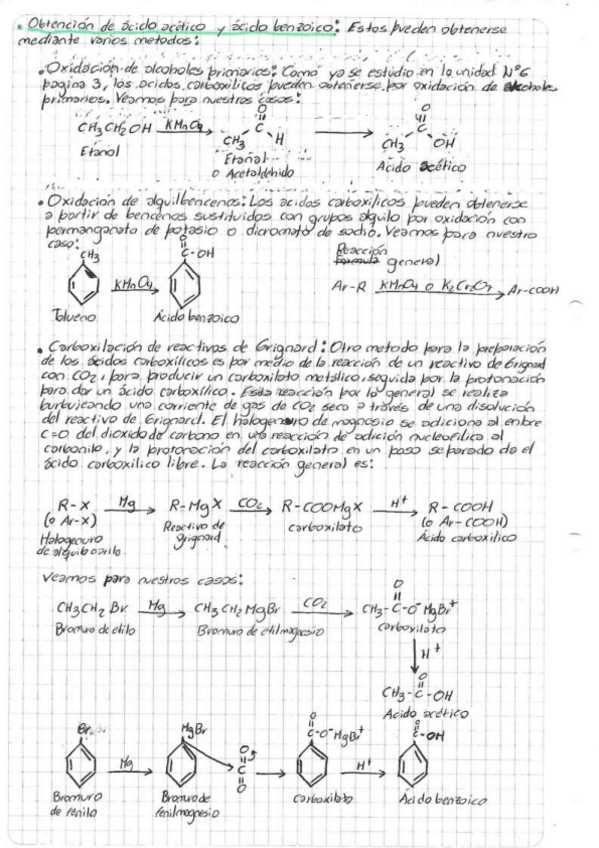 • Obtención de ácido acético y ácido benzoico: Estos pueden obtenerse
mediante varios metodos:
• Oxidación de alcoholes primarios: Como ya se estudió en la unidad Nº6
pagina 3, los acidos carboxilicos pueden obtenerse por oxidación de alcoholes
primarios. Veamos para nuestros casos:
CH3CH2OH KMnO4 → CH3 C O H → CH3 C O OH
Etanol Etanal Acido acético
o Acetaldehido
• Oxidación de alquilbencenos: Los acidos carboxilicos pueden obtenerse
a partir de bencenos sustituidos con grupos alquilo por oxidación con
permanganato de potasio o dicromato de sodio. Veamos para nuestro
caso:
Reacción
general
CH3 KMnO4 → O C-OH
Ar-R KMnO4 o K2Cr2O7 → Ar-COOH
Tolueno Ácido benzoico
• Carboxilación de reactivos de Grignard: Otro metodo para la preparación
de los ácidos carboxílicos es por medio de la reacción de un reactivo de Grignard
con CO2, para producir un carboxilato metálico, seguida por la protonación
para dar un ácido carboxílico. Esta reacción por lo general se realiza
burbujeando una corriente de gas de CO2 seco a través de una disolución
del reactivo de Grignard. El halogenuro de magnesio se adiciona al enlace
C=O del dioxido de carbono en una reacción de adición nucleofílica al
carbonilo, y la protonación del carboxilato en un paso separado da el
ácido carboxilico libre. La reacción general es:
R-X Mg → R-MgX CO2 → R-COOMgX H+ → R-COOH
(o Ar-X) Reactivo de carboxilato (o Ar-COOH)
Halogenuro grignard Acido carboxilico
de alquilo o arilo
Veamos para nuestros casos:
CH3CH2Br Mg → CH3CH2MgBr CO2 → CH3-C-O⁻MgBr⁺
O
Bromuro de etilo Bromuro de etilmagnesio carboxilato
↓ H+
O
CH3-C-OH
Acido acético
Br MgBr O O
Mg → O C O → C-O⁻MgBr⁺ H+ → C-OH
Bromuro Bromuro de carboxilato Ácido benzoico
de fenilo fenilmagnesio